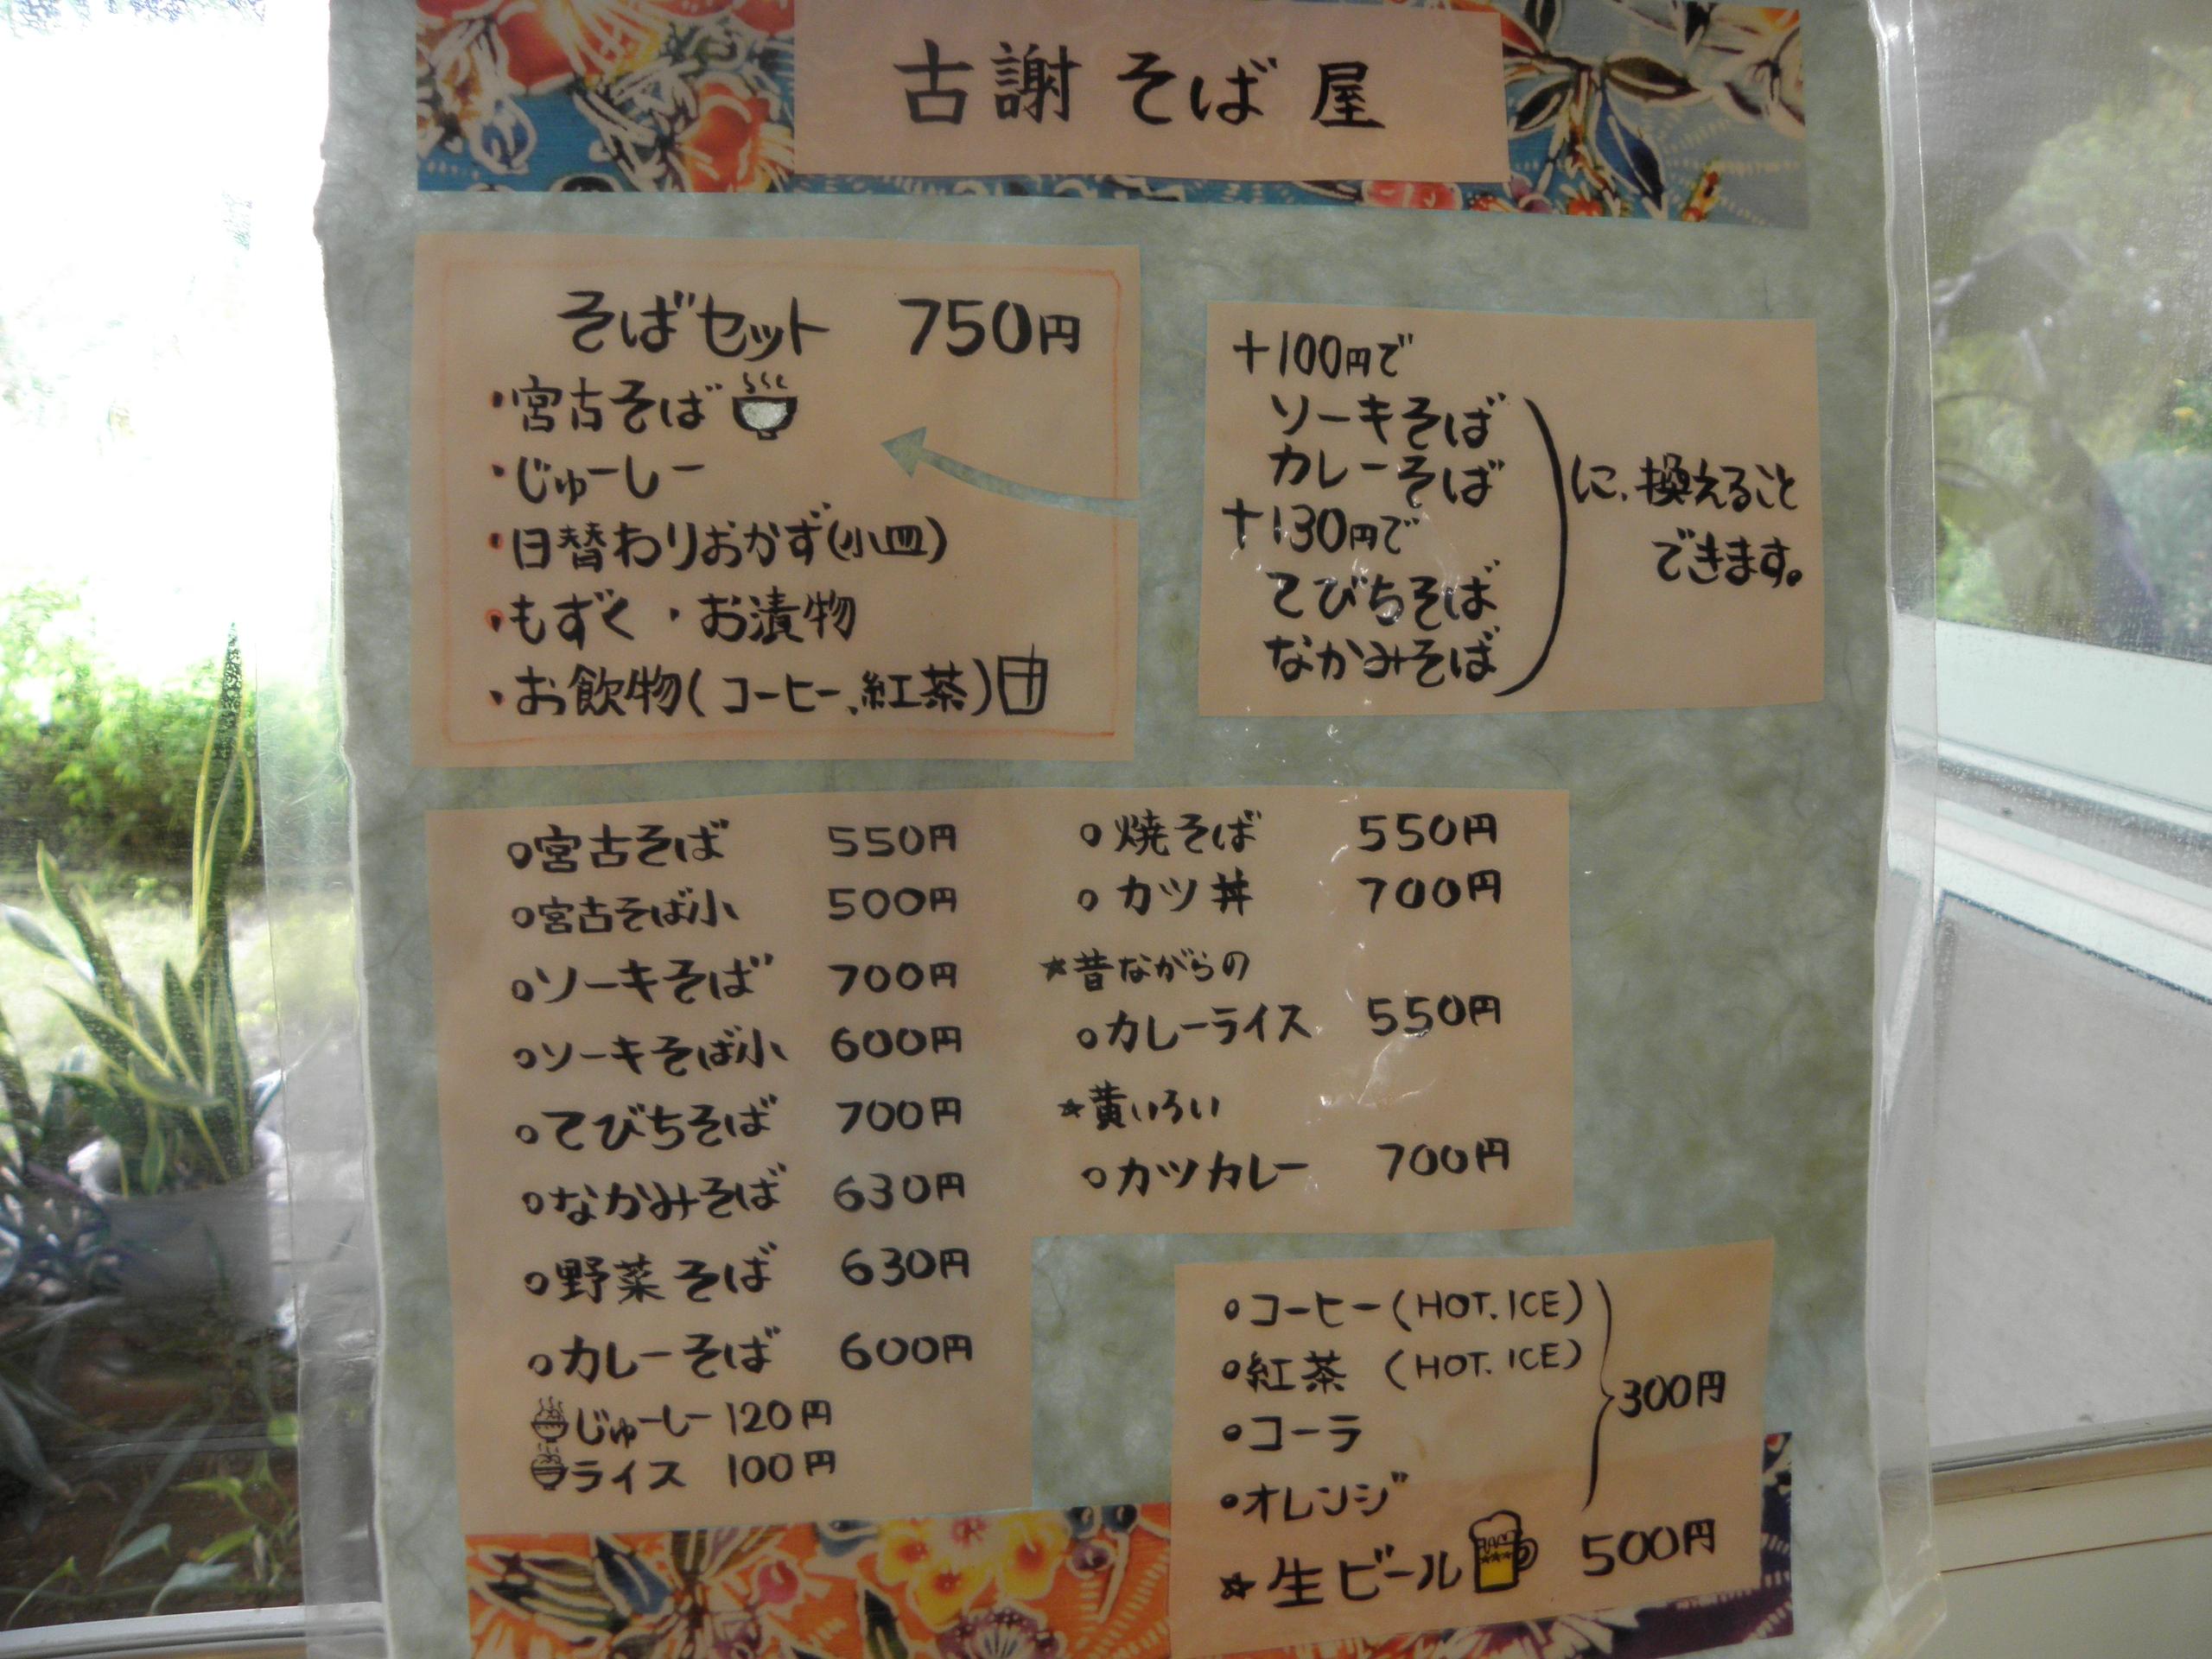 古謝そば屋
そばセット 750円
・宮古そば
・じゅーしー
・日替わりおかず(小皿)
・もずく・お漬物
・お飲物(コーヒー、紅茶)
+100円で
ソーキそば
カレーそば
+130円で
てびちそば
なかみそば
に、換えること
できます。
○宮古そば 550円
○宮古そば小 500円
○ソーキそば 700円
○ソーキそば小 600円
○てびちそば 700円
○なかみそば 630円
○野菜そば 630円
○カレーそば 600円
じゅーしー 120円
ライス 100円
○焼そば 550円
○カツ丼 700円
☆昔ながらの
○カレーライス 550円
☆黄いろい
○カツカレー 700円
○コーヒー(HOT.ICE)
○紅茶 (HOT.ICE)
○コーラ
○オレンジ
300円
☆生ビール 500円